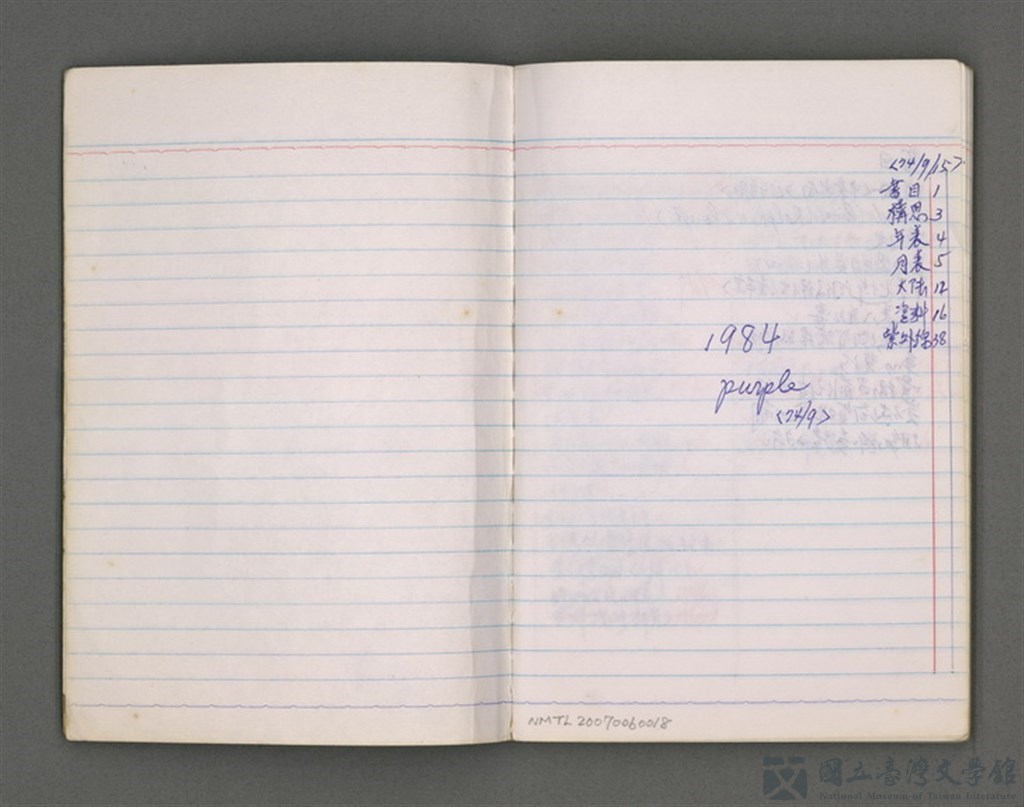 <74/9/15>
書目 1
構思 3
年表 4
月表 5
大陸 12
資料 16
紫外線 38
1984
purple
<74/9>
NMTL20070060018
國立臺灣文學館
National Museum of Taiwan Literature